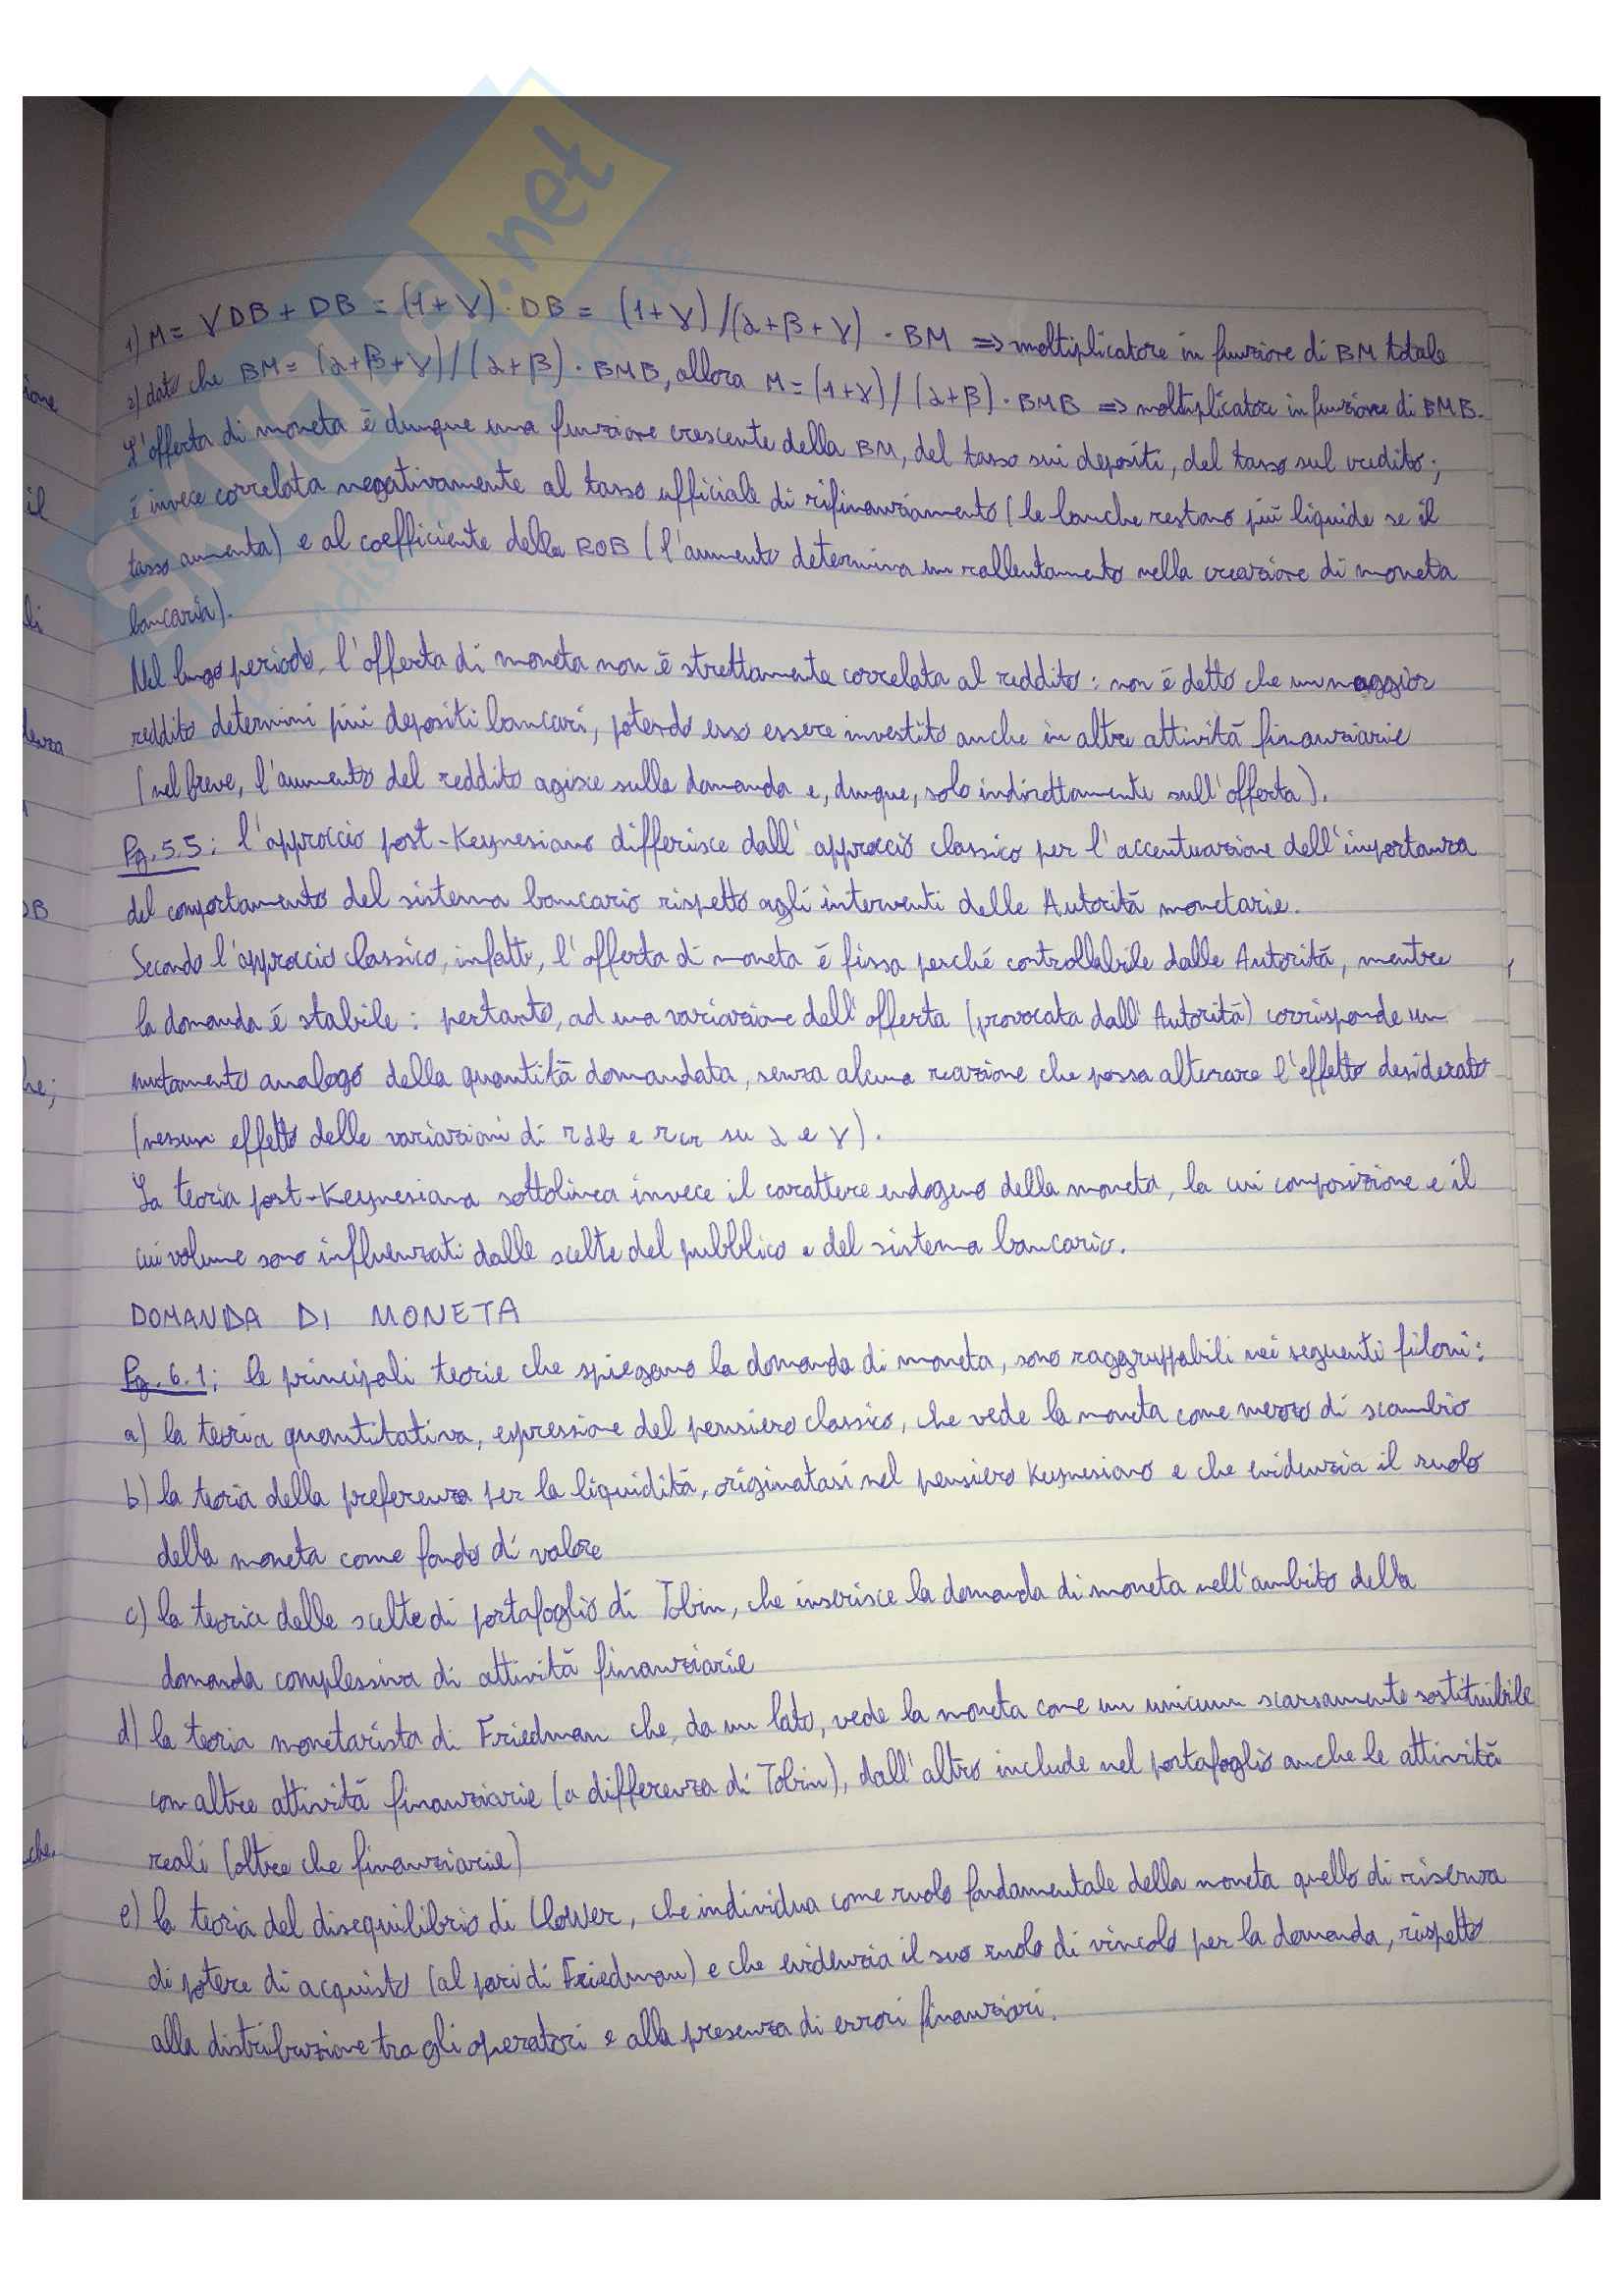 1) M = γDB + DB = (1+γ)·DB = (1+γ)/(α+β+γ) · BM => moltiplicatore in funzione di BM totale
2) dato che BM = (α+β+γ)/(α+β)·BMB, allora M = (1+γ)/(α+β)·BMB => moltiplicatore in funzione di BMB.
L'offerta di moneta è dunque una funzione crescente della BM, del tasso sui depositi, del tasso sul credito;
è invece correlata negativamente al tasso ufficiale di rifinanziamento (le banche restano più liquide se il
tasso aumenta) e al coefficiente della ROB (l'aumento determina un rallentamento nella creazione di moneta
bancaria).
Nel lungo periodo, l'offerta di moneta non è strettamente correlata al reddito: non è detto che un maggior
reddito determini più depositi bancari, potendo esso essere investito anche in altre attività finanziarie
(nel breve, l'aumento del reddito agisce sulla domanda e, dunque, solo indirettamente sull'offerta).
Pg. 5.5: l'approccio post-Keynesiano differisce dall'approccio classico per l'accentuazione dell'importanza
del comportamento del sistema bancario rispetto agli interventi delle Autorità monetarie.
Secondo l'approccio classico, infatti, l'offerta di moneta è fissa perché controllabile dalle Autorità, mentre
la domanda è stabile: pertanto, ad una variazione dell'offerta (provocata dall'Autorità) corrisponde un
mutamento analogo della quantità domandata, senza alcuna reazione che possa alterare l'effetto desiderato
(nessun effetto delle variazioni di rdb e rcr su α e γ).
La teoria post-Keynesiana sottolinea invece il carattere endogeno della moneta, la cui composizione e il
cui volume sono influenzati dalle scelte del pubblico e del sistema bancario.
DOMANDA DI MONETA
Pg. 6.1: le principali teorie che spiegano la domanda di moneta, sono raggruppabili nei seguenti filoni:
a) la teoria quantitativa, espressione del pensiero classico, che vede la moneta come mezzo di scambio
b) la teoria della preferenza per la liquidità, originatasi nel pensiero Keynesiano e che evidenzia il ruolo
della moneta come fondo di valore
c) la teoria delle scelte di portafoglio di Tobin, che inserisce la domanda di moneta nell'ambito della
domanda complessiva di attività finanziarie
d) la teoria monetarista di Friedman che, da un lato, vede la moneta come un unicum scarsamente sostituibile
con altre attività finanziarie (a differenza di Tobin), dall'altro include nel portafoglio anche le attività
reali (oltre che finanziarie)
e) la teoria del disequilibrio di Clower, che individua come ruolo fondamentale della moneta quello di riserva
di potere di acquisto (al pari di Friedman) e che evidenzia il suo ruolo di vincolo per la domanda, rispetto
alla distribuzione tra gli operatori e alla presenza di errori finanziari.